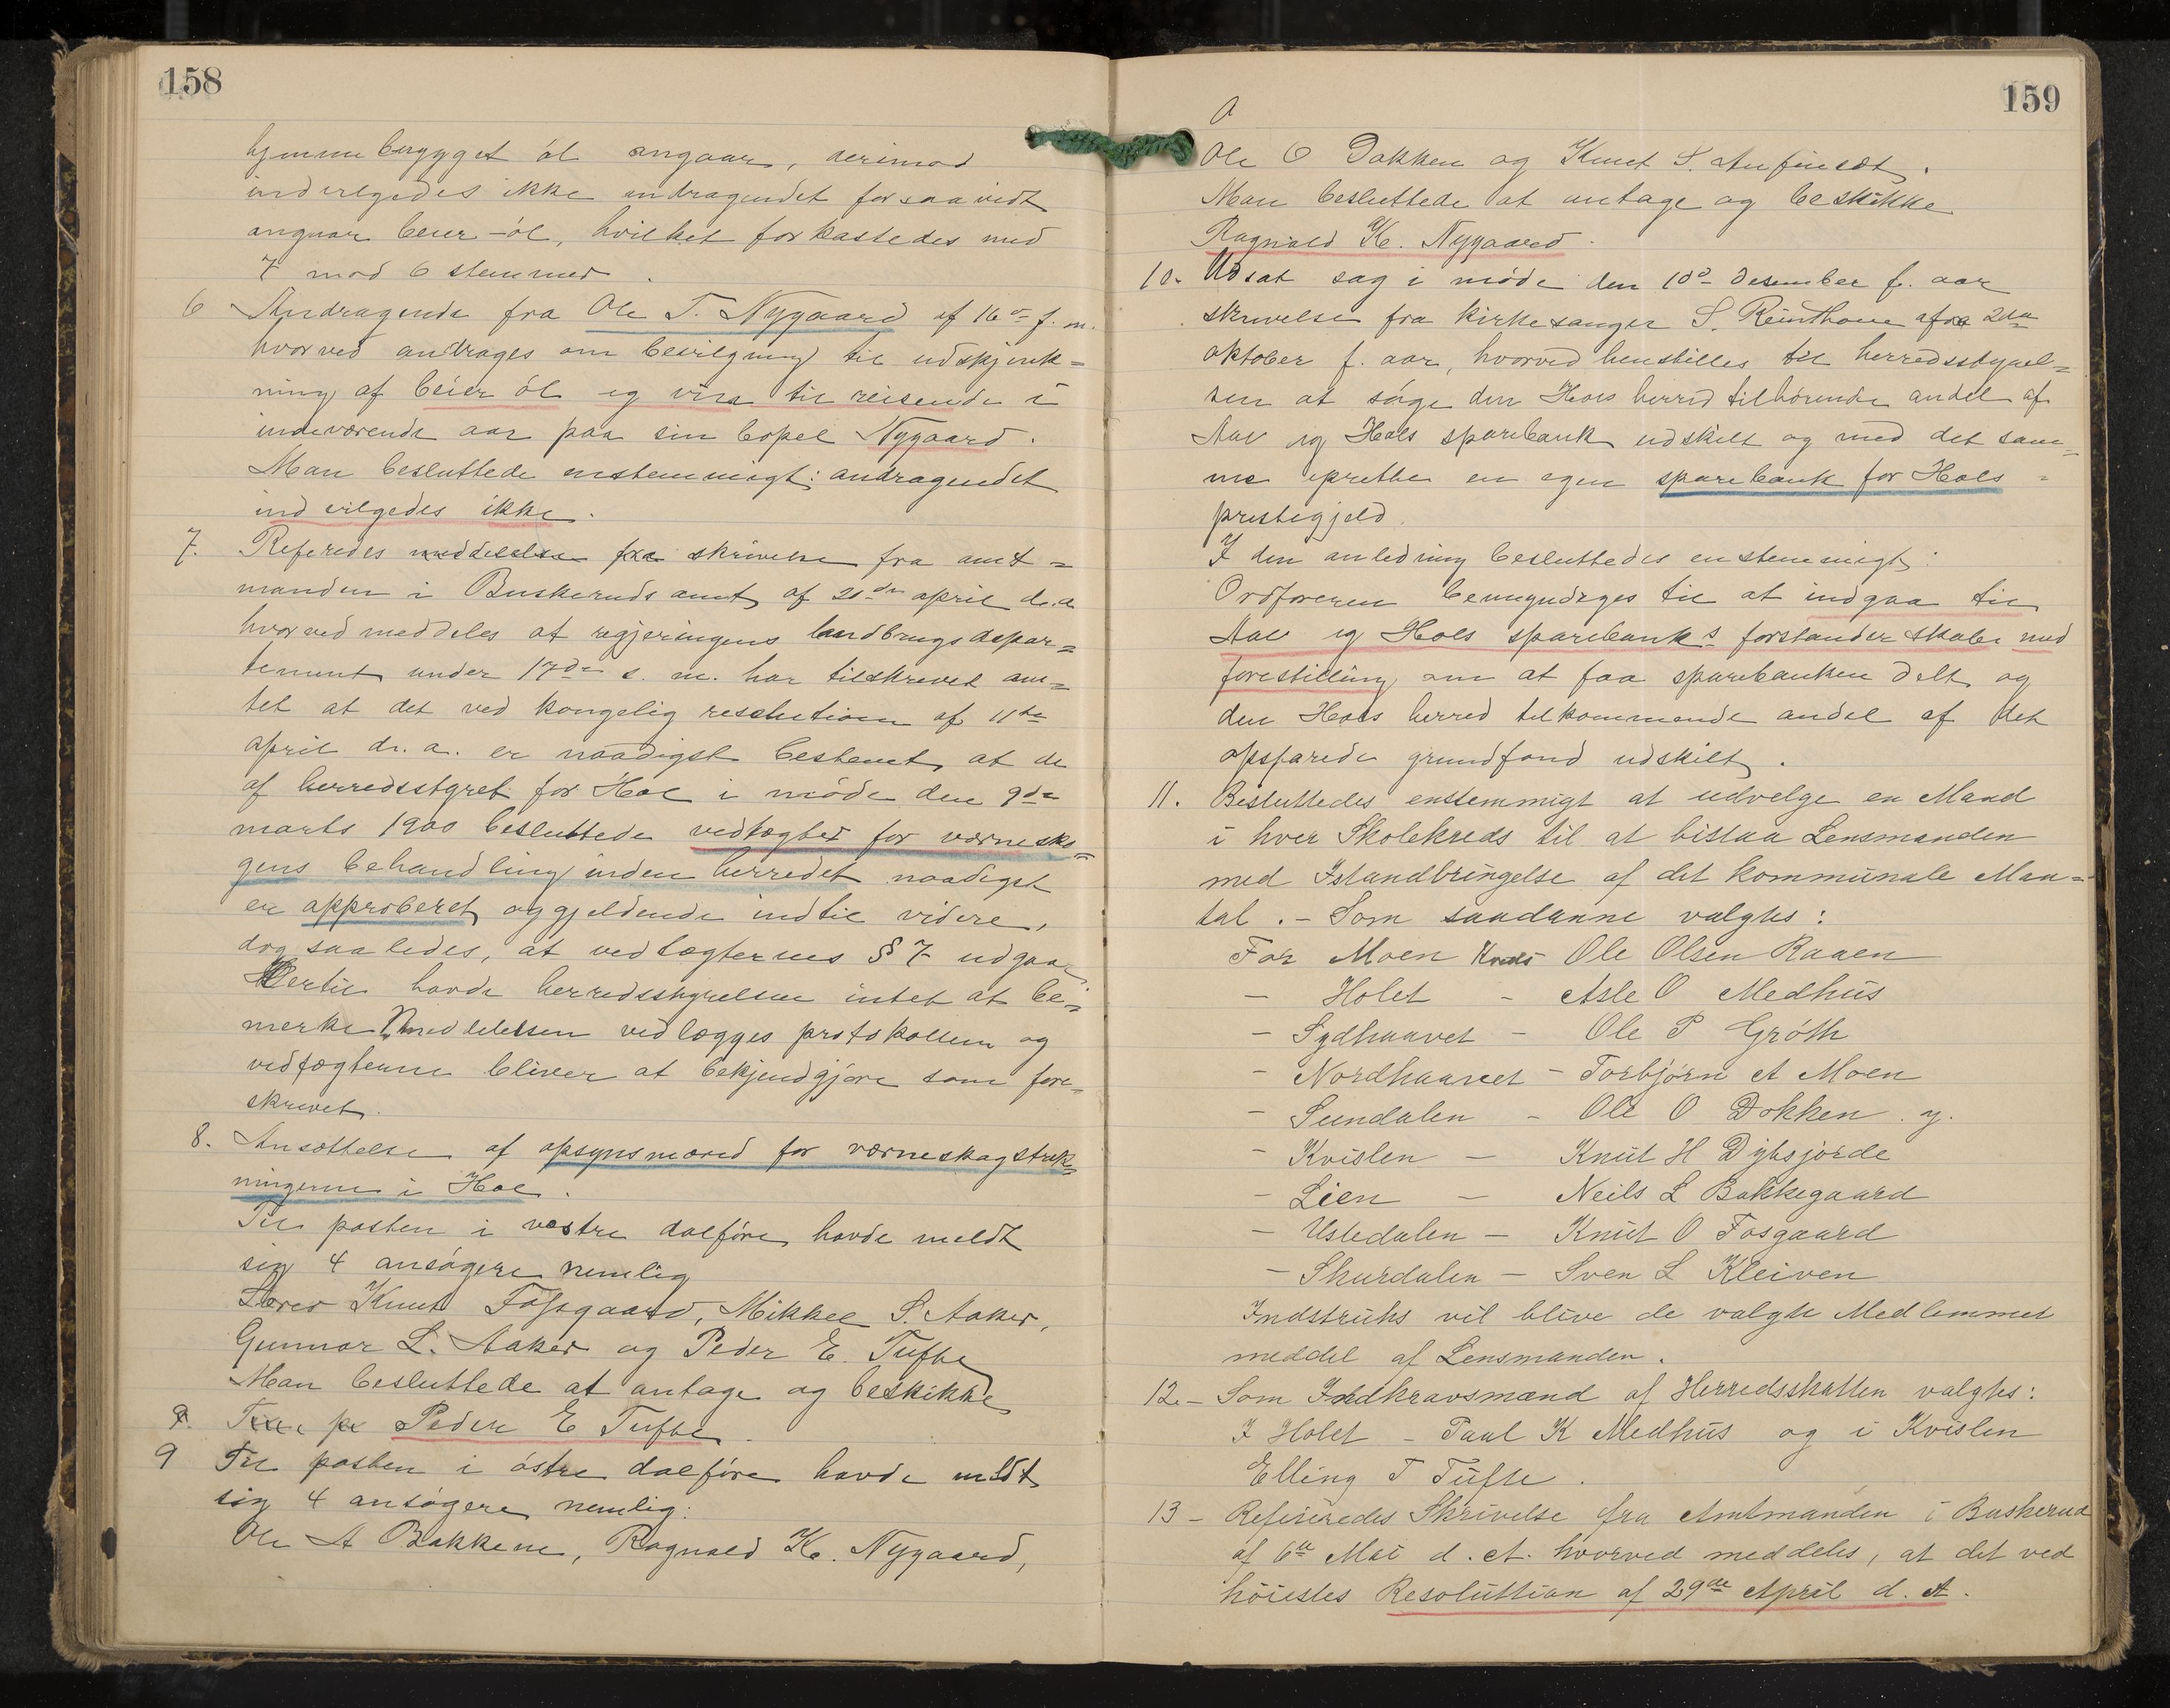 158
hjemmebrygget øl angaar, derimod
indvilgedes ikke andragendet forsaavidt
angaar beier-øl, hvilket forkastedes med
7 mod 6 stemmer.
6 Andragende fra Ole T. Nygaard af 16de f. m.
hvorved andrages om bevilgning til udskjenk=
ning af beier øl og vin til reisende i
indeværende aar paa sin bopel Nygaard.
Man besluttede enstemmigt: andragendet
indvilgedes ikke.
7. Referedes meddelelse fra skrivelse fra amt=
manden i Buskeruds amt af 20de april d. a
hvorved meddeles at regjeringens landbrugsdepar=
tement under 17de s. m. har tilskrevet am=
tet at det ved kongelig resolution af 11te
april d. a. er naadigst bestemt, at de
af herredsstyret for Hol i møde den 9de
marts 1900 besluttede vedtægter for værnesko=
gens behandling inden herredet naadigst
er approberet og gjeldende indtil videre,
dog saaledes, at vedtægternes § 7 udgaar
Hertil havde herredsstyrelsen intet at be=
merke. Meddelelsen vedlægges protokollen og
vedtægterne bliver at bekjendgjøre som fore=
skrevet.
8. Ansættelse af opsynsmænd for værneskogstrek=
ningerne i Hol.
Til posten i vestre dalføre havde meldt
sig 4 ansøgere nemlig
Lærer Knut Fossgaard, Mikkel S. Aaker,
Gunnar L. Aaker og Peder E. Tufte
Man besluttede at antage og beskikke
9. Peder E Tufte.
9 Til posten i østre dalføre havde meldt
sig 4 ansøgere nemlig:
Ole A Bakkene, Ragnvald K. Nygaard,
159
Ole O Dokken og Knut S. Anfinset.
Man besluttede at antage og beskikke
Ragnvald K. Nygaard.
10. Udsat sag i møde den 10de desember f. aar
skrivelse fra kirkesanger S. Reinthone af
oktober f. aar, hvorved henstilles til herredsstyrel=
sen at søge den Hols herred tilhørende andel af
Aal og Hols sparebank udskilt og med det sam=
me oprette en egen sparebank for Hols
prestegjeld.
I den anledning besluttedes enstemmigt:
Ordføreren bemyndiges til at indgaa til
Aal og Hols sparebanks forstanderskab med
forestilling om at faa sparebanken delt og
den Hols herred tilkommende andel af det
opsparede grundfond udskilt.
11. Besluttedes enstemmigt at udvelge en Mand
i hver Skolekreds til at bistaa Lensmanden
med Istandbringelse af det kommunale Man=
tal. - Som saadanne valgtes:
For Moen Kreds Ole Olsen Raaen
- Holet - Asle O Medhus
- Sydhaavet - Ole P Grøth
- Nordhaavet - Torbjørn A Moen
- Sundalen - Ole O Dokken y.
- Kvislen - Knut H Dybsjorde
- Lien - Neils L Bakkegaard
- Ustedalen - Knut O Fosgaard
- Skurdalen - Sven L Kleiven
Indstruks vil blive de valgte Medlemmet
meddel af Lensmanden.
12. - Som Indkravsmænd af Herredsskatten valgtes:
I Holet - Paul K Medhus og i Kvislen
Elling T Tufte.
13 - Refereredes Skrivelse fra Amtmanden i Buskerud
af 6te Mai d. A. hvorved meddeles, at det ved
høiestes Resoluttion af 29de April d. A.